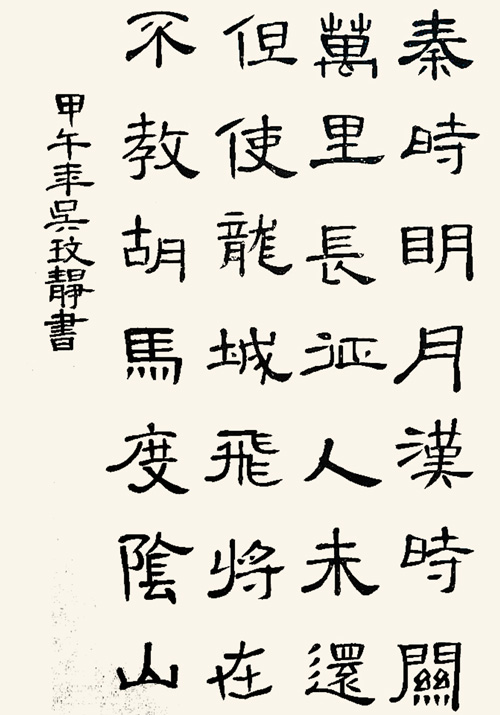 秦時明月漢時關
萬里長征人未還
但使龍城飛將在
不教胡馬度陰山
甲午年吳玟靜書